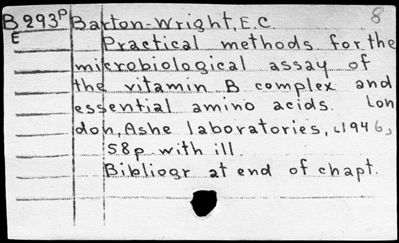 B293P Barton-Wright, E.C. 8
E Practical methods for the
microbiological assay of
the vitamin B complex and
essential amino acids. Lon
don, Ashe laboratories, c1946,
58p with ill.
Bibliogr at end of chapt.